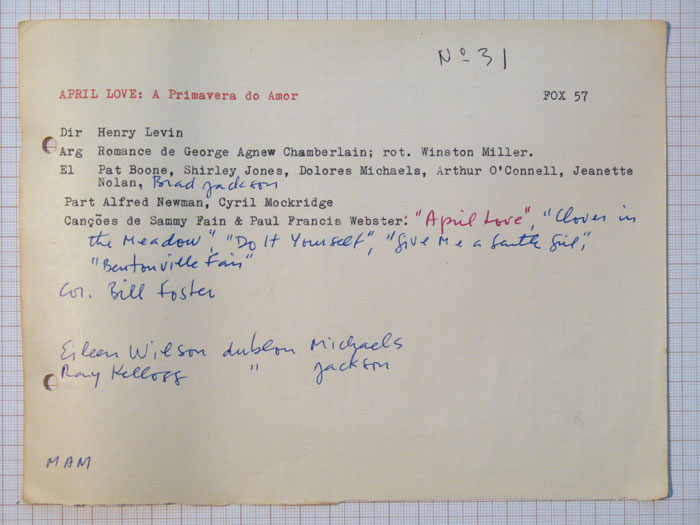 Nº 31
APRIL LOVE: A Primavera do Amor FOX 57
Dir Henry Levin
Arg Romance de George Agnew Chamberlain; rot. Winston Miller.
El Pat Boone, Shirley Jones, Dolores Michaels, Arthur O'Connell, Jeanette
Nolan, Brad Jackson
Part Alfred Newman, Cyril Mockridge
Canções de Sammy Fain & Paul Francis Webster: "April Love", "Clover in
the Meadow", "Do It Yourself", "Give Me a Gentle Girl",
"Bentonville Fair"
Cor. Bill Foster
Eileen Wilson dublou Michaels
Ray Kellogg " Jackson
MAM